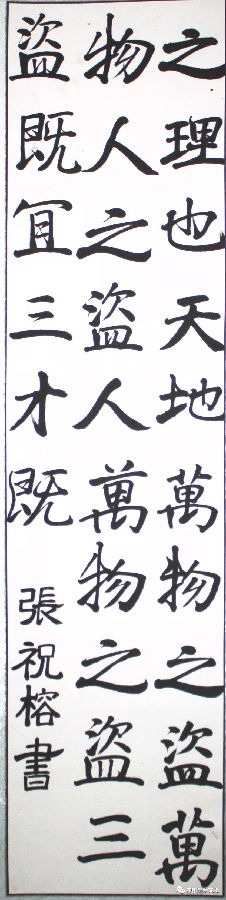 之理也天地萬物之盜萬
物人之盜人萬物之盜三
盜既冝三才既
張祝榕書